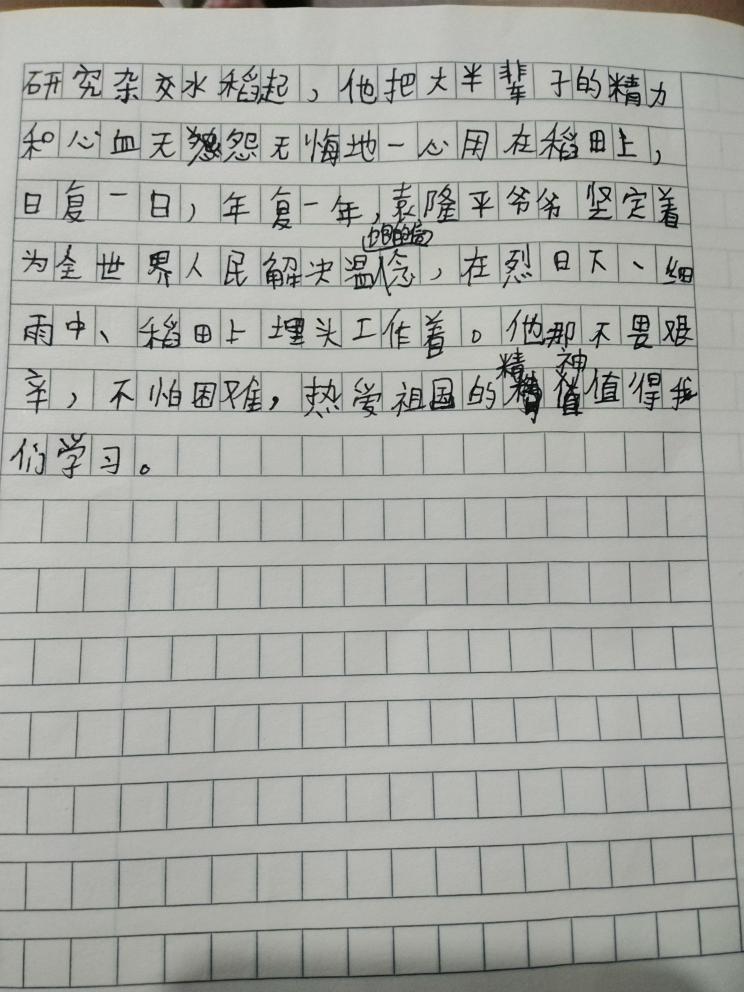 研究杂交水稻起，他把大半辈子的精力
和心血无怨无悔地一心用在稻田上，
日复一日，年复一年，袁隆平爷爷坚定着
为全世界人民解决温饱的信念，在烈日下、细
雨中、稻田上埋头工作着。他那不畏艰
辛，不怕困难，热爱祖国的精神值得我
们学习。